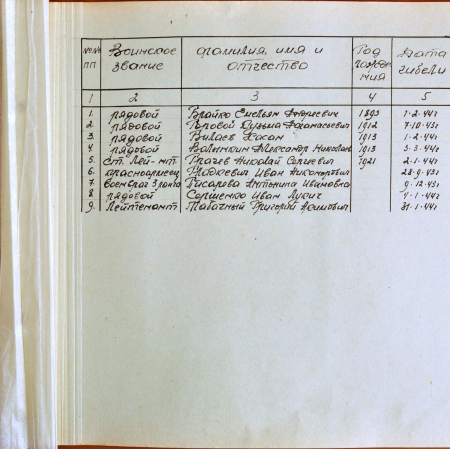 №№ пп Воинское звание Фамилия, имя и отчество Год рождения Дата гибели
1 2 3 4 5
1. рядовой Брайко Емельян Андреевич 1893 1.2.44г
2. рядовой Боровой Кузьма Афанасьевич 1912 7.10.43г
3. рядовой Вилаев Южан 1913 1.2.44г
4. рядовой Волынкин Александр Николаев 1913 3.3.44г
5. ст. лей-нт Грачев Николай Сергеевич 1921 2.1.44г
6. красноармеец Иван Никонорович 28.9.43г
7. военврач 3 ранга Писарева Антонина Ивановна 9.12.43г
8. рядовой Сергиенко Иван Лукич 4.1.44г
9. Лейтенант Табачный Григорий 31.1.44г